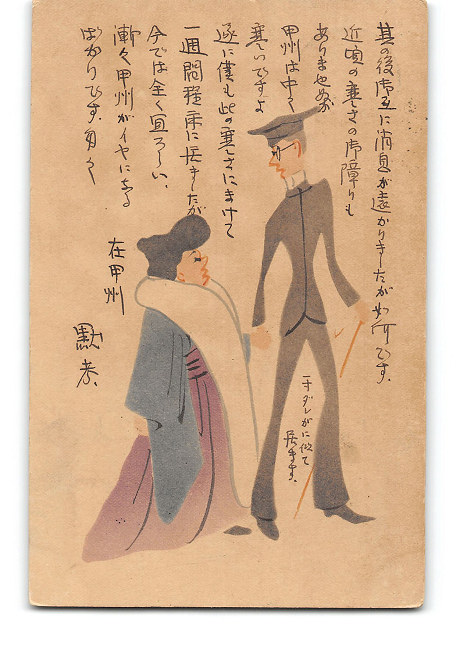 其の後御互に消息が遠かりましたが如何です。
近頃の寒さの御障りも
ありませぬか
甲州は中々
寒いですよ
遂に僕も此の寒さにまけて
一週間程床に居ましたが
今では全く宜ろしい、
漸々甲州がイヤになる
ばかりです、
在甲州
一寸ダレかに似て
居ます。